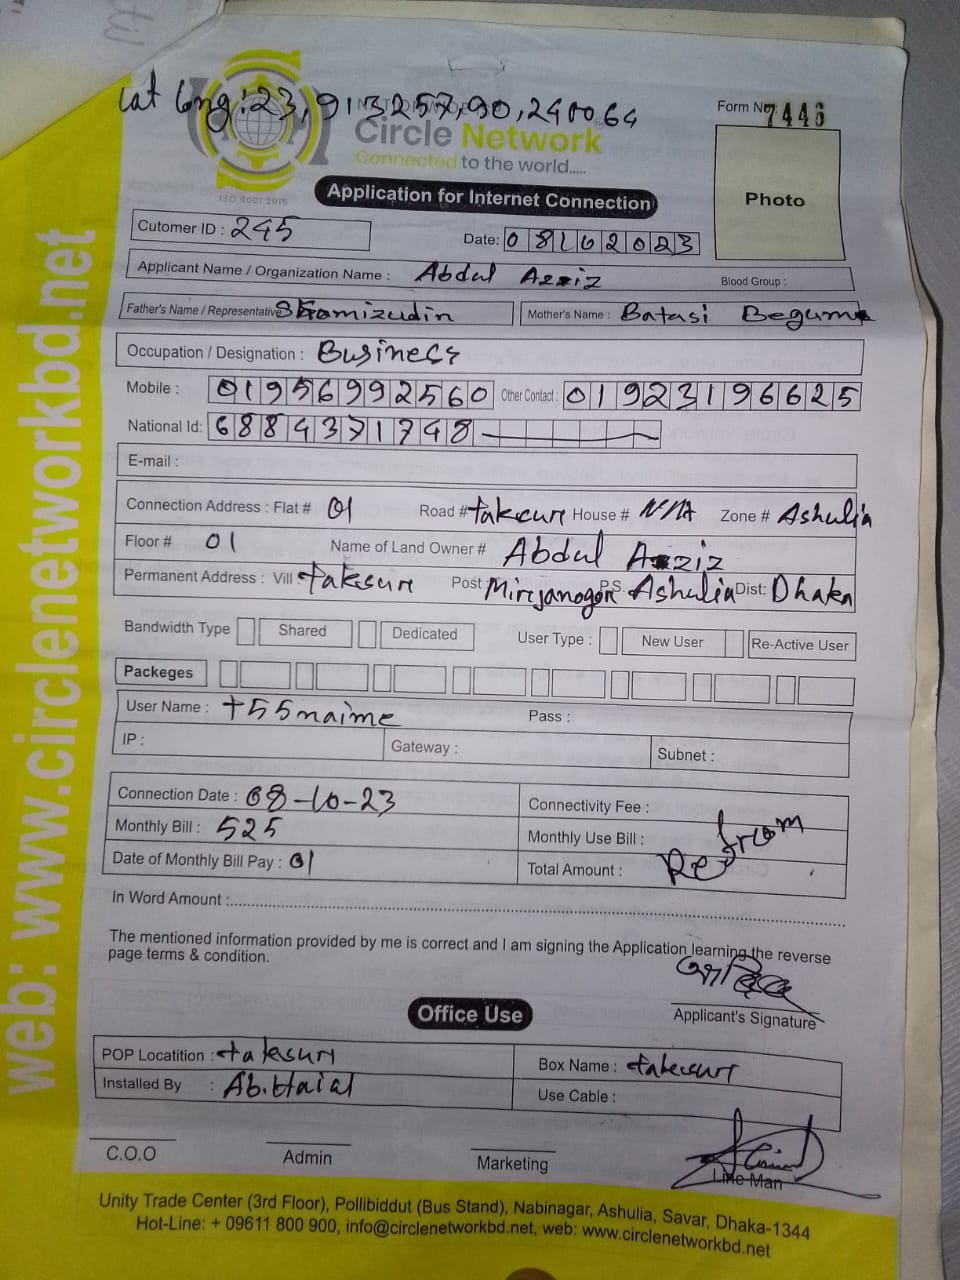 Lat Long: 23,913257,90,240064
Form No: 7446
Circle Network
Connected to the world.....
ISO 9001:2015
Application for Internet Connection
Photo
Cutomer ID : 245
Date: 08102023
Applicant Name / Organization Name : Abdul Azziz
Blood Group :
Father's Name / Representative
Mother's Name : Batasi Begum
Occupation / Designation : Business
Mobile : 01956992560 Other Contact : 01923196625
National Id: 6884371748
E-mail :
Connection Address : Flat # 01 Road # taksuri House # N/A Zone # Ashulia
Floor # 01 Name of Land Owner # Abdul Azziz
Permanent Address : Vill taksuri Post Mirjanogor P.S. Ashulia Dist: Dhaka
Bandwidth Type Shared Dedicated User Type : New User Re-Active User
Packeges
User Name : t55naime Pass :
IP : Gateway : Subnet :
Connection Date : 08-10-23 Connectivity Fee :
Monthly Bill : 525 Monthly Use Bill :
Date of Monthly Bill Pay : 01 Total Amount :
In Word Amount :
The mentioned information provided by me is correct and I am signing the Application learning the reverse
page terms & condition.
Applicant's Signature
Office Use
POP Locatition : taksuri Box Name : taksuri
Installed By : Ab. Halal Use Cable :
C.O.O Admin Marketing Line Man
Unity Trade Center (3rd Floor), Pollibiddut (Bus Stand), Nabinagar, Ashulia, Savar, Dhaka-1344
Hot-Line: + 09611 800 900, info@circlenetworkbd.net, web: www.circlenetworkbd.net
web: www.circlenetworkbd.net